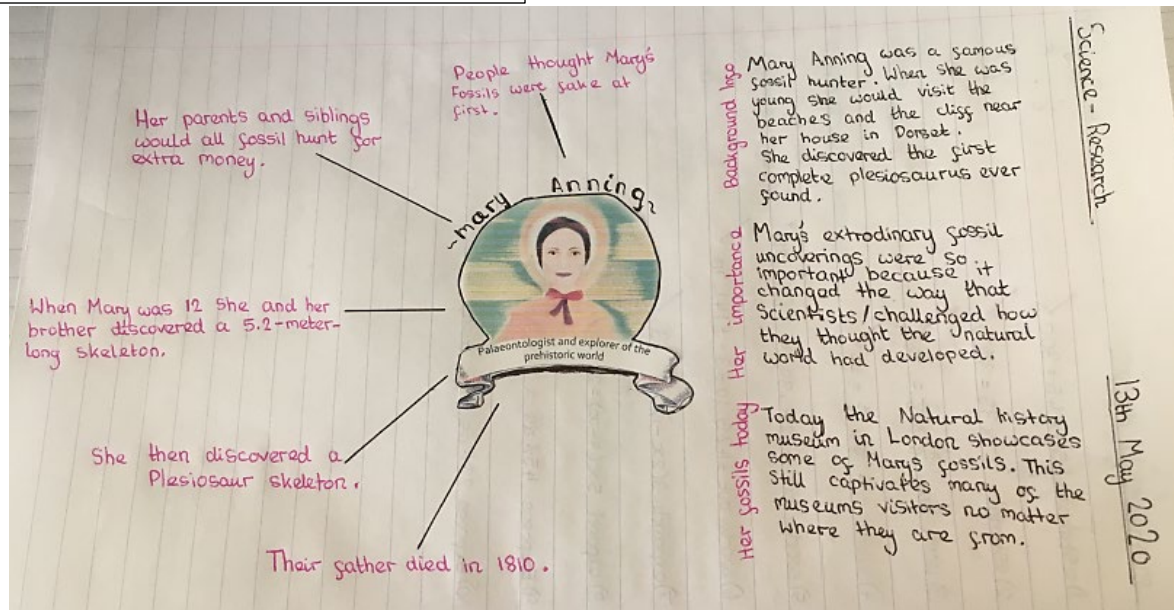 Science - Research
13th May 2020
People thought Mary's
Fossils were fake at
first.
Her parents and siblings
would all fossil hunt for
extra money.
~Mary Anning~
Palaeontologist and explorer of the
prehistoric world
When Mary was 12 she and her
brother discovered a 5.2-meter-
long skeleton.
She then discovered a
Plesiosaur skeleton.
Their father died in 1810.
Background Info
Mary Anning was a famous
fossil hunter. When she was
young she would visit the
beaches and the cliff near
her house in Dorset.
She discovered the first
complete plesiosaurus ever
found.
Her importance
Mary's extrodinary fossil
uncoverings were so
important because it
changed the way that
Scientists/challenged how
they thought the natural
world had developed.
Her fossils today
Today the Natural history
museum in London showcases
some of Marys fossils. This
still captivates many of the
museums visitors no matter
where they are from.